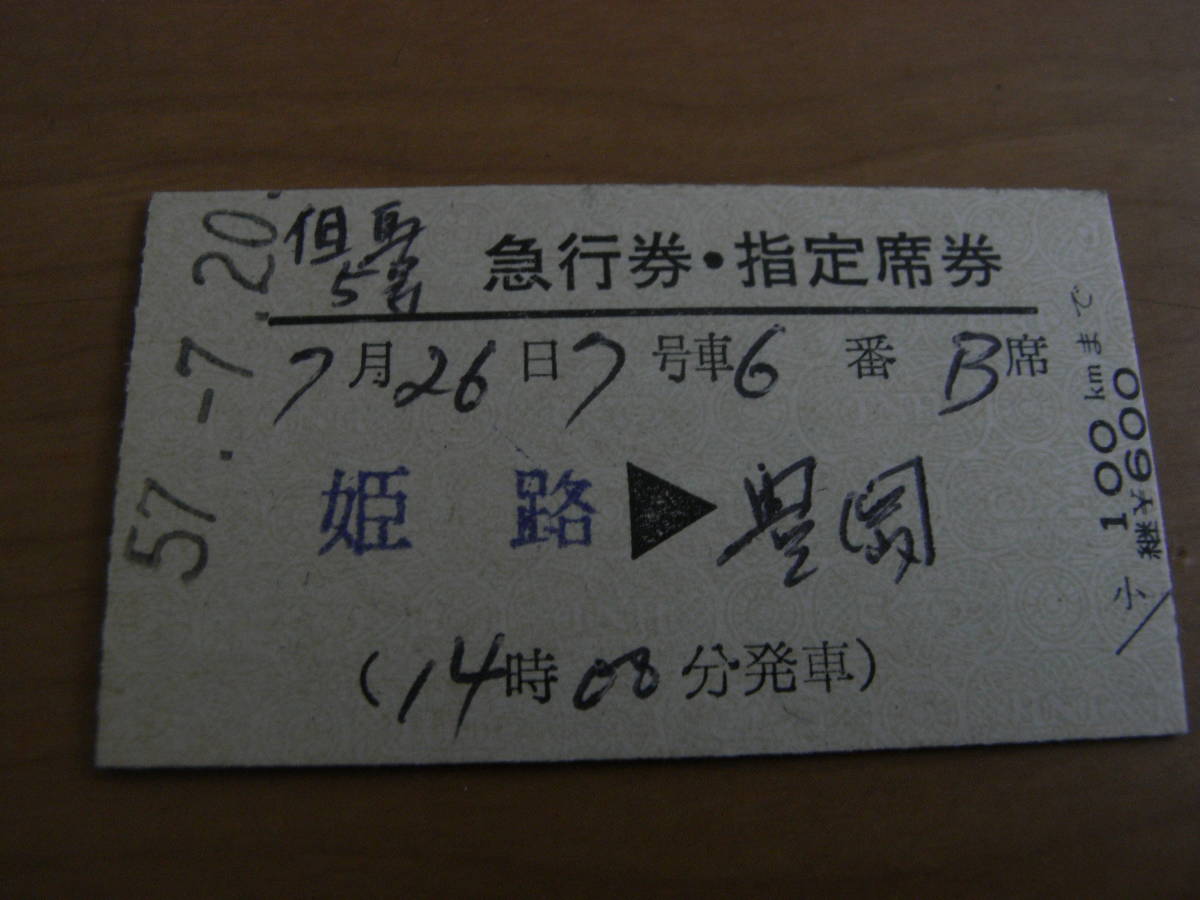 57.-7.20.
但馬
5号
急行券・指定席券
7月26日7号車6番B席
姫路▶豊岡
(14時08分発車)
100kmまで
継¥600
小